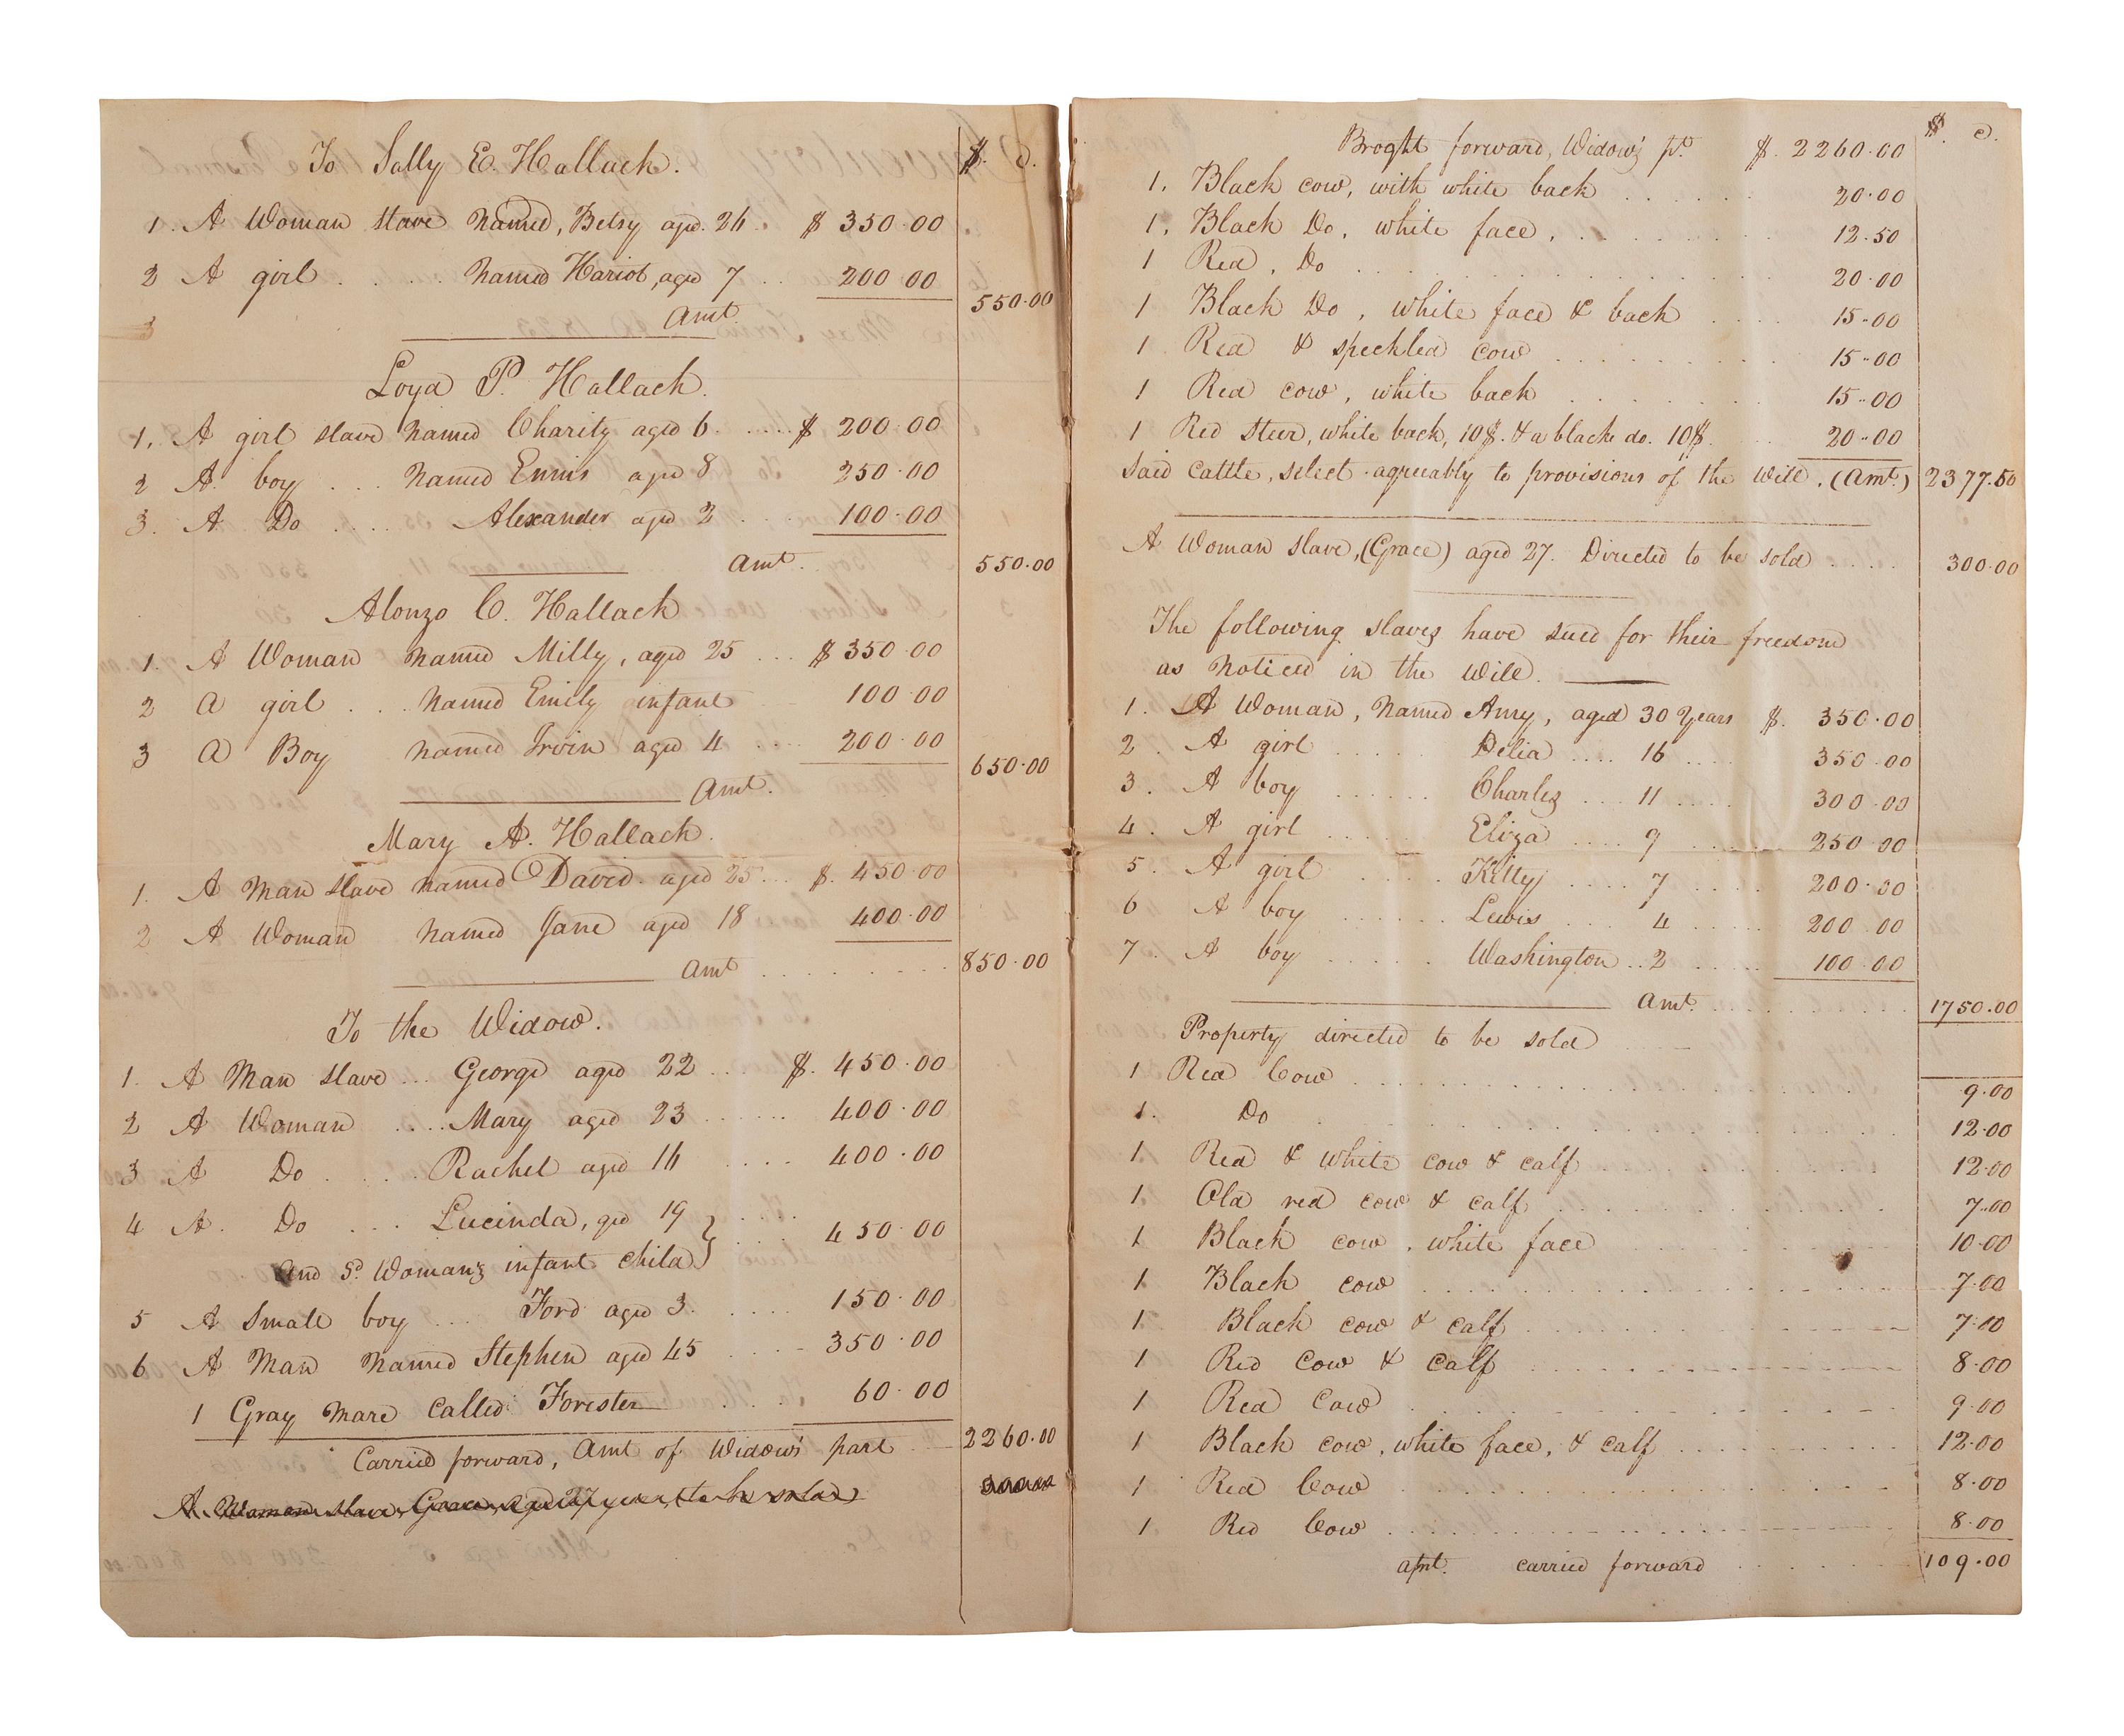 $. c.
To Sally E. Hallack.
1. A Woman slave named, Betsy aged. 26 .. $ 350.00
2 A girl ..... named Hariot, aged 7 ... 200 00
Amt. 550.00
Loyd P. Hallack.
1. A girl slave named Charity aged 6 .... $ 200.00
2 A boy ... named Ennis aged 8 250.00
3. A Do .... Alexander aged 2 ... 100.00
Amt. 550.00
Alonzo C. Hallack
1. A Woman named Milly, aged 25 ... $ 350.00
2 A girl ... named Emily infant 100.00
3 A Boy named Irvin aged 4 .... 200.00
Amt. 650.00
Mary A. Hallack.
1. A Man slave named David. aged 25 ... $. 450.00
2 A Woman named Jane aged 18 400.00
Amt ........ 850.00
To the Widow.
1. A Man slave ... George aged 22 ... $. 450.00
2 A Woman .... Mary aged 23 ...... 400.00
3 A Do ..... Rachel aged 16 .... 400.00
4 A. Do ... Lucinda, ged 19 ....
and Sd. Woman's infant child } .... 450.00
5 A Small boy ... Ford aged 3. .... 150.00
6 A Man named Stephen aged 45 .... 350.00
1 Gray mare called Forester .... 60.00
Carried forward, Amt of Widow's part 2260.00
A. Woman slave, Grace, aged 27 years, (to be sold)
$. c.
Broght forward, Widow's pt. $. 2260.00
1. Black cow, with white back ...... 20.00
1. Black Do, white face, ........ 12.50
1 Red, Do .............. 20.00
1 Black Do, white face & back .... 15.00
1 Red & speckled cow ......... 15.00
1 Red cow, white back ........ 15.00
1 Red Steer, white back, 10$. & a black do. 10$. ... 20.00
said Cattle, select agreeably to provisions of the Will, (Amt.) 2377.50
A Woman slave, (Grace) aged 27. Directed to be sold .... 300.00
The following slaves have sued for their freedom
as noticed in the Will.
1. A Woman, named Amy, aged 30 Years $. 350.00
2. A girl ..... Delia .... 16 .... 350.00
3. A boy ...... Charles ... 11 .... 300.00
4. A girl ..... Eliza .... 9 .... 250 00
5. A girl ..... Kitty .... 7 .... 200.00
6 A boy ...... Lewis ... 4 ..... 200.00
7. A boy ..... Washington .. 2 ..... 100.00
Amt. ......... 1750.00
Property directed to be sold
1 Red Cow ................ 9.00
1. Do ................ 12.00
1 Red & White cow & calf ......... 12.00
1 Old red cow & calf .......... 7.00
1 Black cow, white face ........ 10.00
1 Black cow .............. 7.00
1 Black cow & calf ........... 7.00
1 Red Cow & Calf ........... 8.00
1 Red Cow ............. 9.00
1 Black cow, white face, & calf ........ 12.00
1 Red Cow .............. 8.00
1 Red Cow .............. 8.00
amt. carried forward ....... 109.00